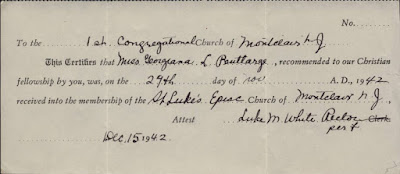 No.
To the 1st. Congregational Church of Montclair N J
This Certifies that Miss Georgiana L. Pauttarge, recommended to our Christian
fellowship by you, was, on the 29th day of Nov A. D., 1942
received into the membership of the St Luke's Episc Church of Montclair N. J.,
Attest Luke M. White, Rector Clerk
per
Dec. 15 1942.